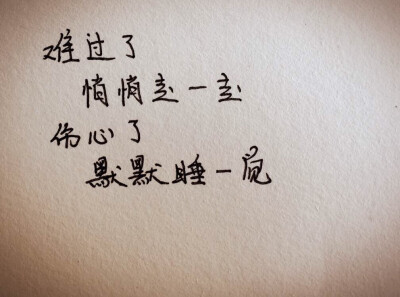 难过了
悄悄走一走
伤心了
默默睡一觉